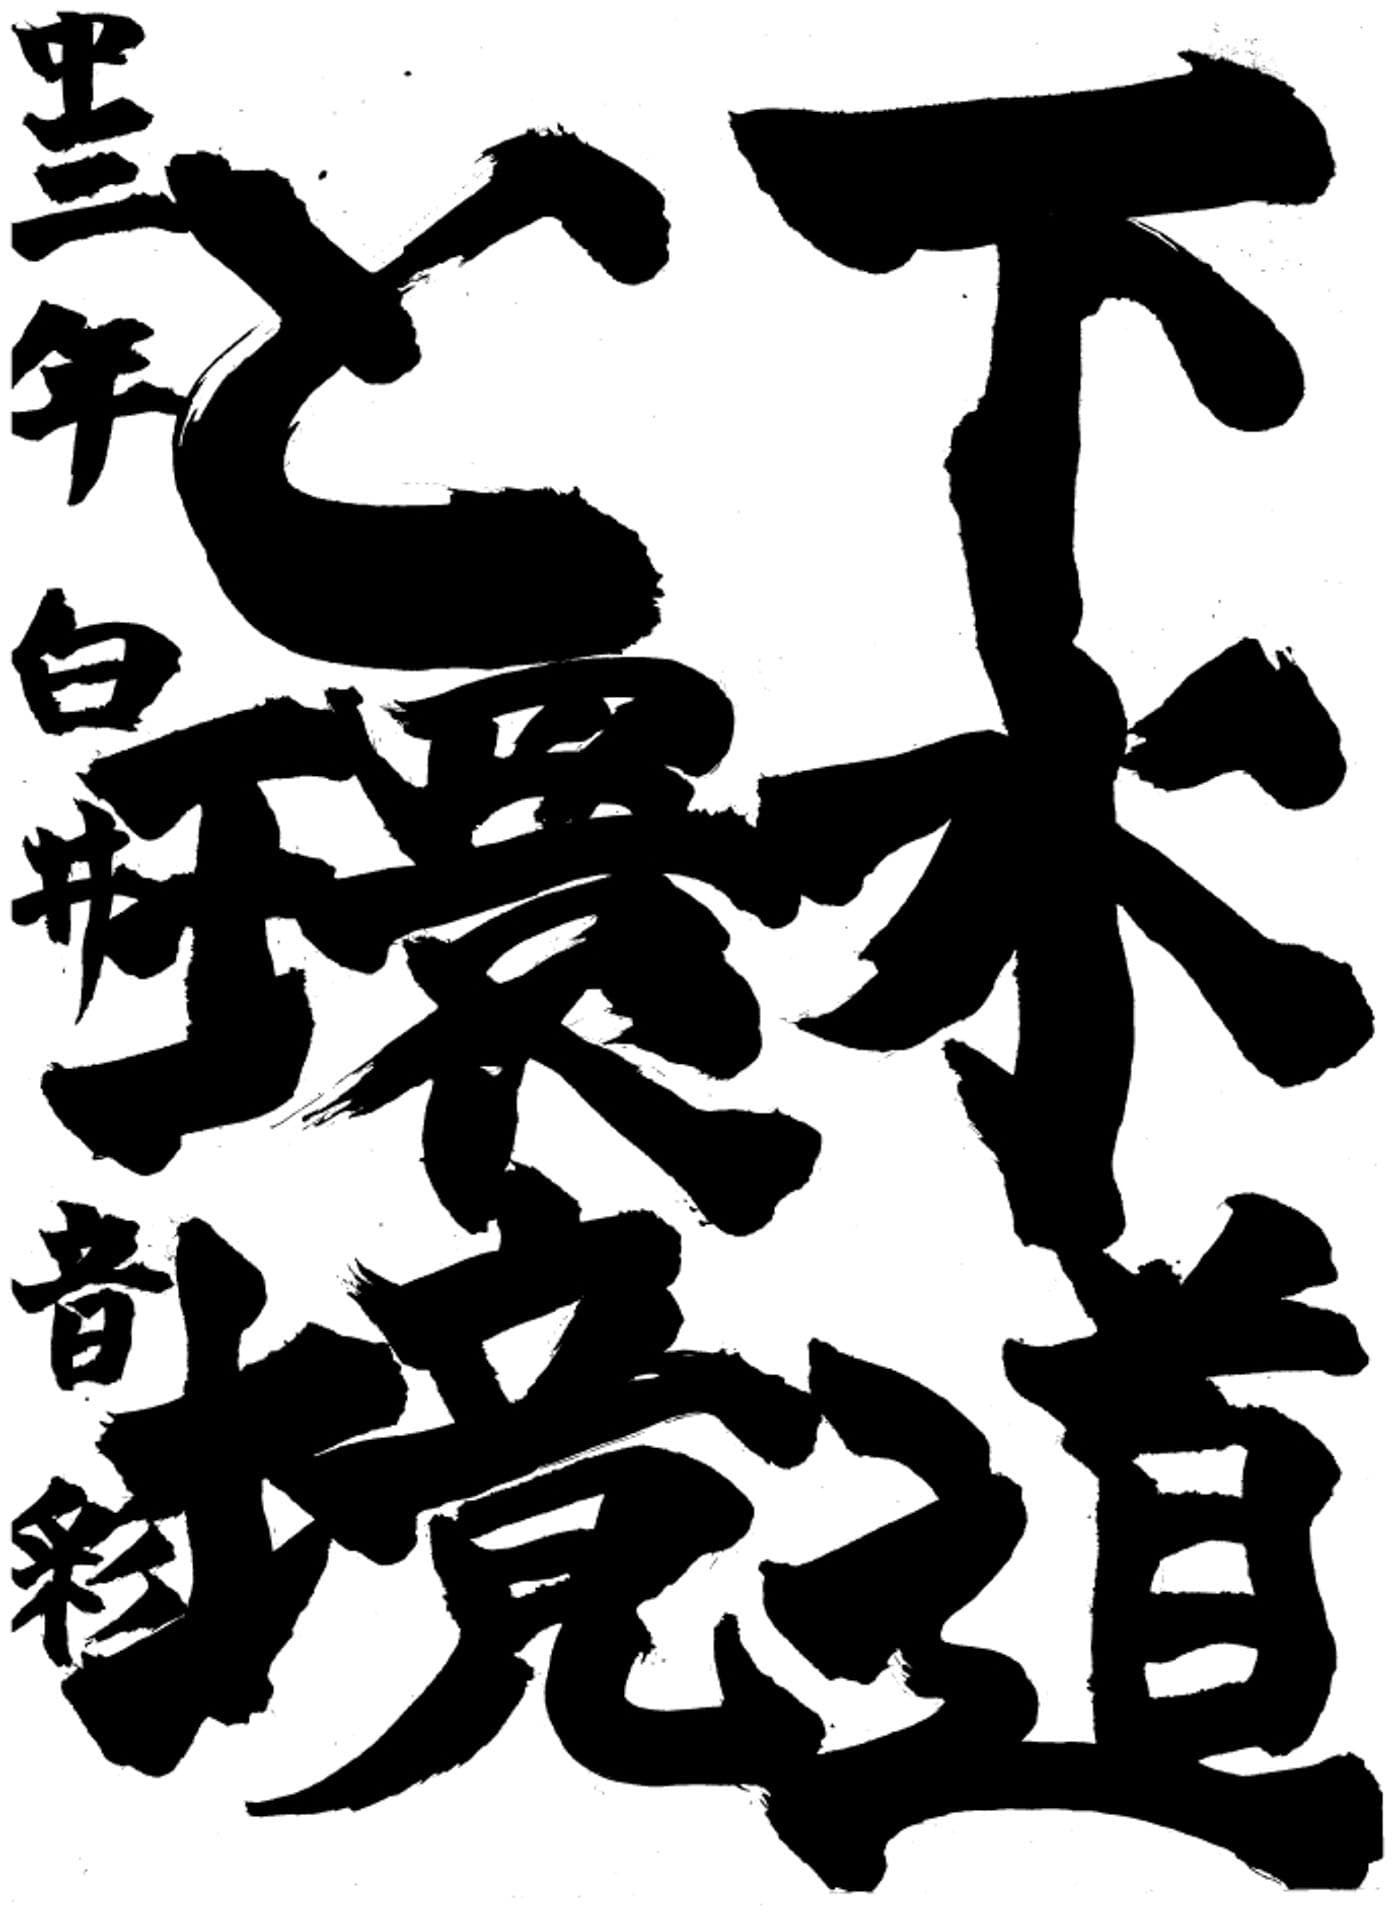 下水道
と環境
中三年 白井音彩